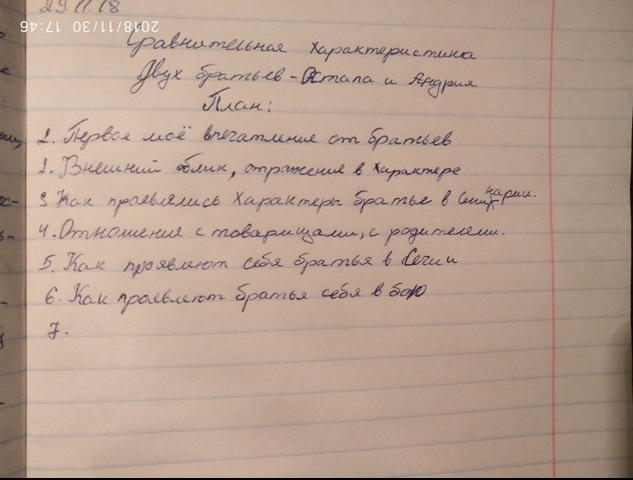 29.11.18
2018/11/30 17:46
Сравнительная характеристика
Двух братьев - Остапа и Андрия
План:
1. Первое моё впечатление от братьев
2. Внешний облик, отражение в характере
3. Как проявлялись характеры братье в Семинарии.
4. Отношения с товарищами, с родителями.
5. Как проявлеют себя братья в Сечи
6. Как проявлеют братья себя в бою
7.